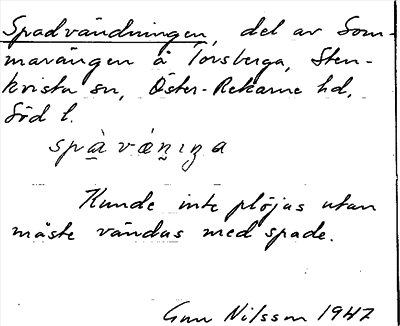 Spadvändningen, del av Som-
marängen å Torsberga, Sten-
kvista sn, Öster-Rekarne hd,
Söd l.
spà̱ vǽṉıŋa
Kunde inte plöjas utan
måste vändas med spade.
Gun Nilsson 1947